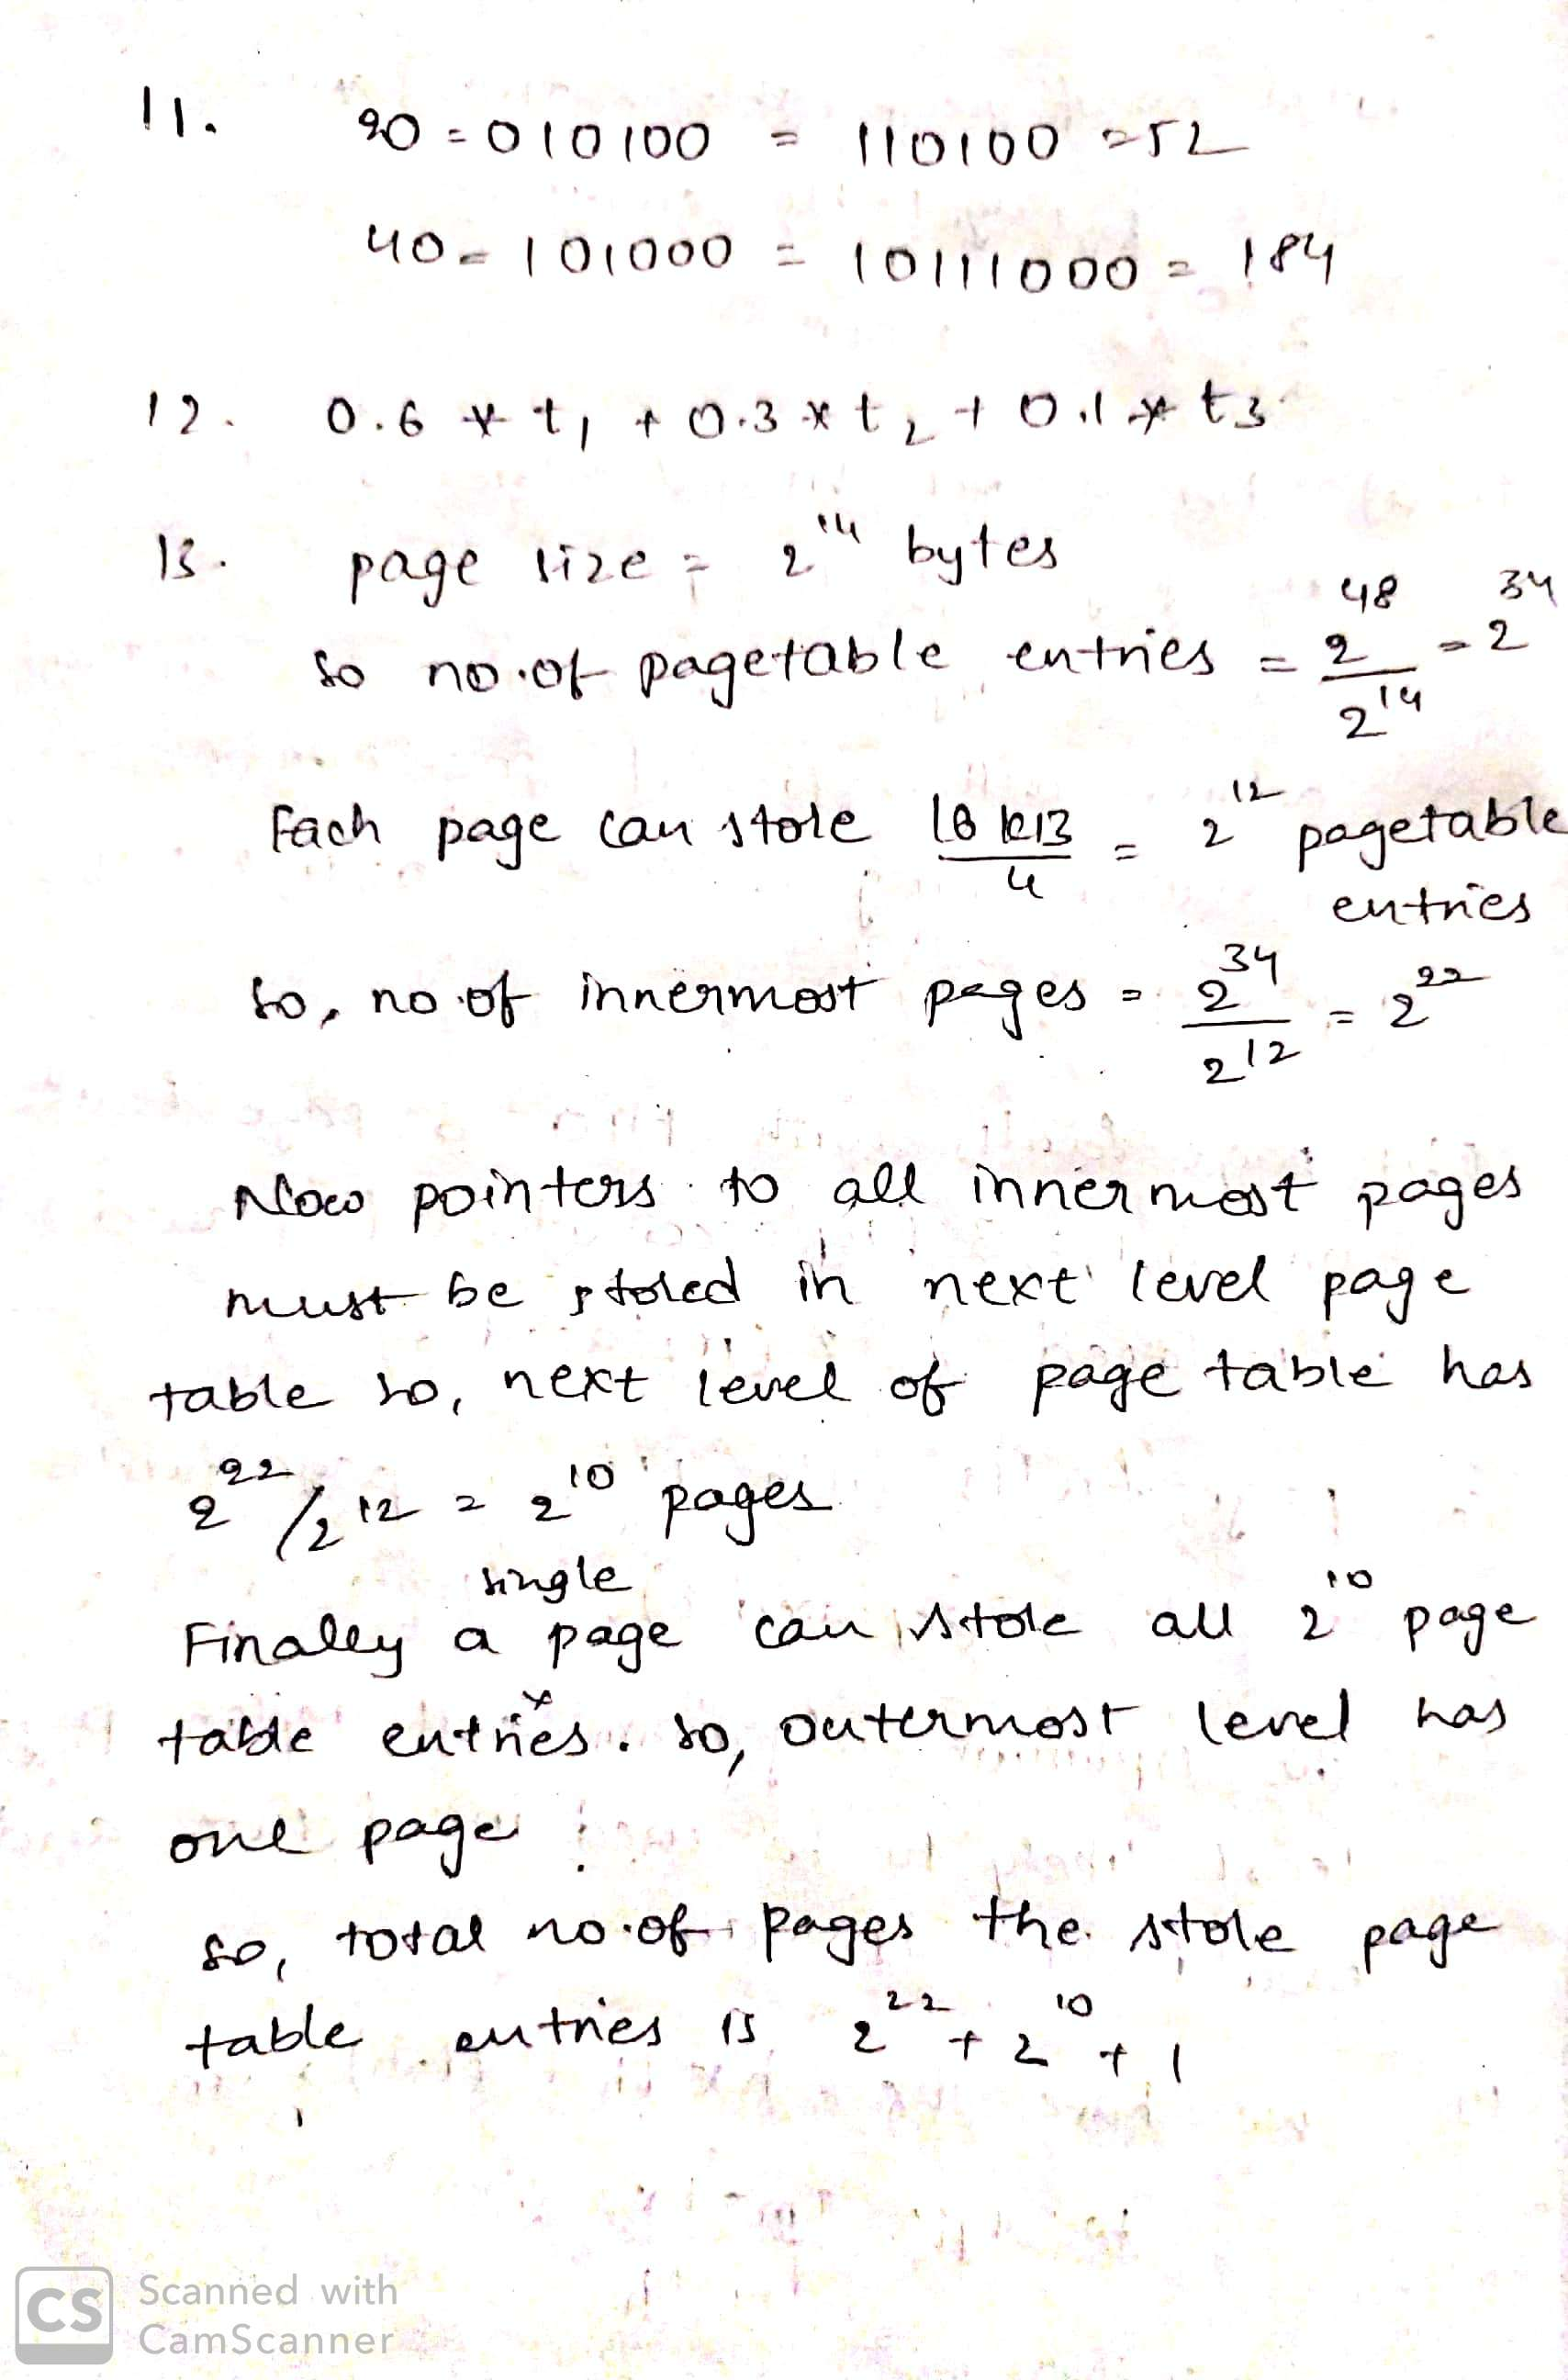 11. 20 = 010100 = 110100 = 52
40 = 101000 = 10111000 = 184
12. 0.6 * t1 + 0.3 * t2 + 0.1 * t3
13. page size = 2^14 bytes
so no.of pagetable entries = 2^48 / 2^14 = 2^34
Each page can store 16 KB / 4 = 2^12 pagetable
entries
so, no of innermost pages = 2^34 / 2^12 = 2^22
Now pointers to all innermost pages
must be stored in next level page
table so, next level of page table has
2^22 / 2^12 = 2^10 pages
single
Finally a page can store all 2^10 page
table entries. so, outermost level has
one page
so, total no.of pages the store page
table entries is 2^22 + 2^10 + 1
CS Scanned with
CamScanner